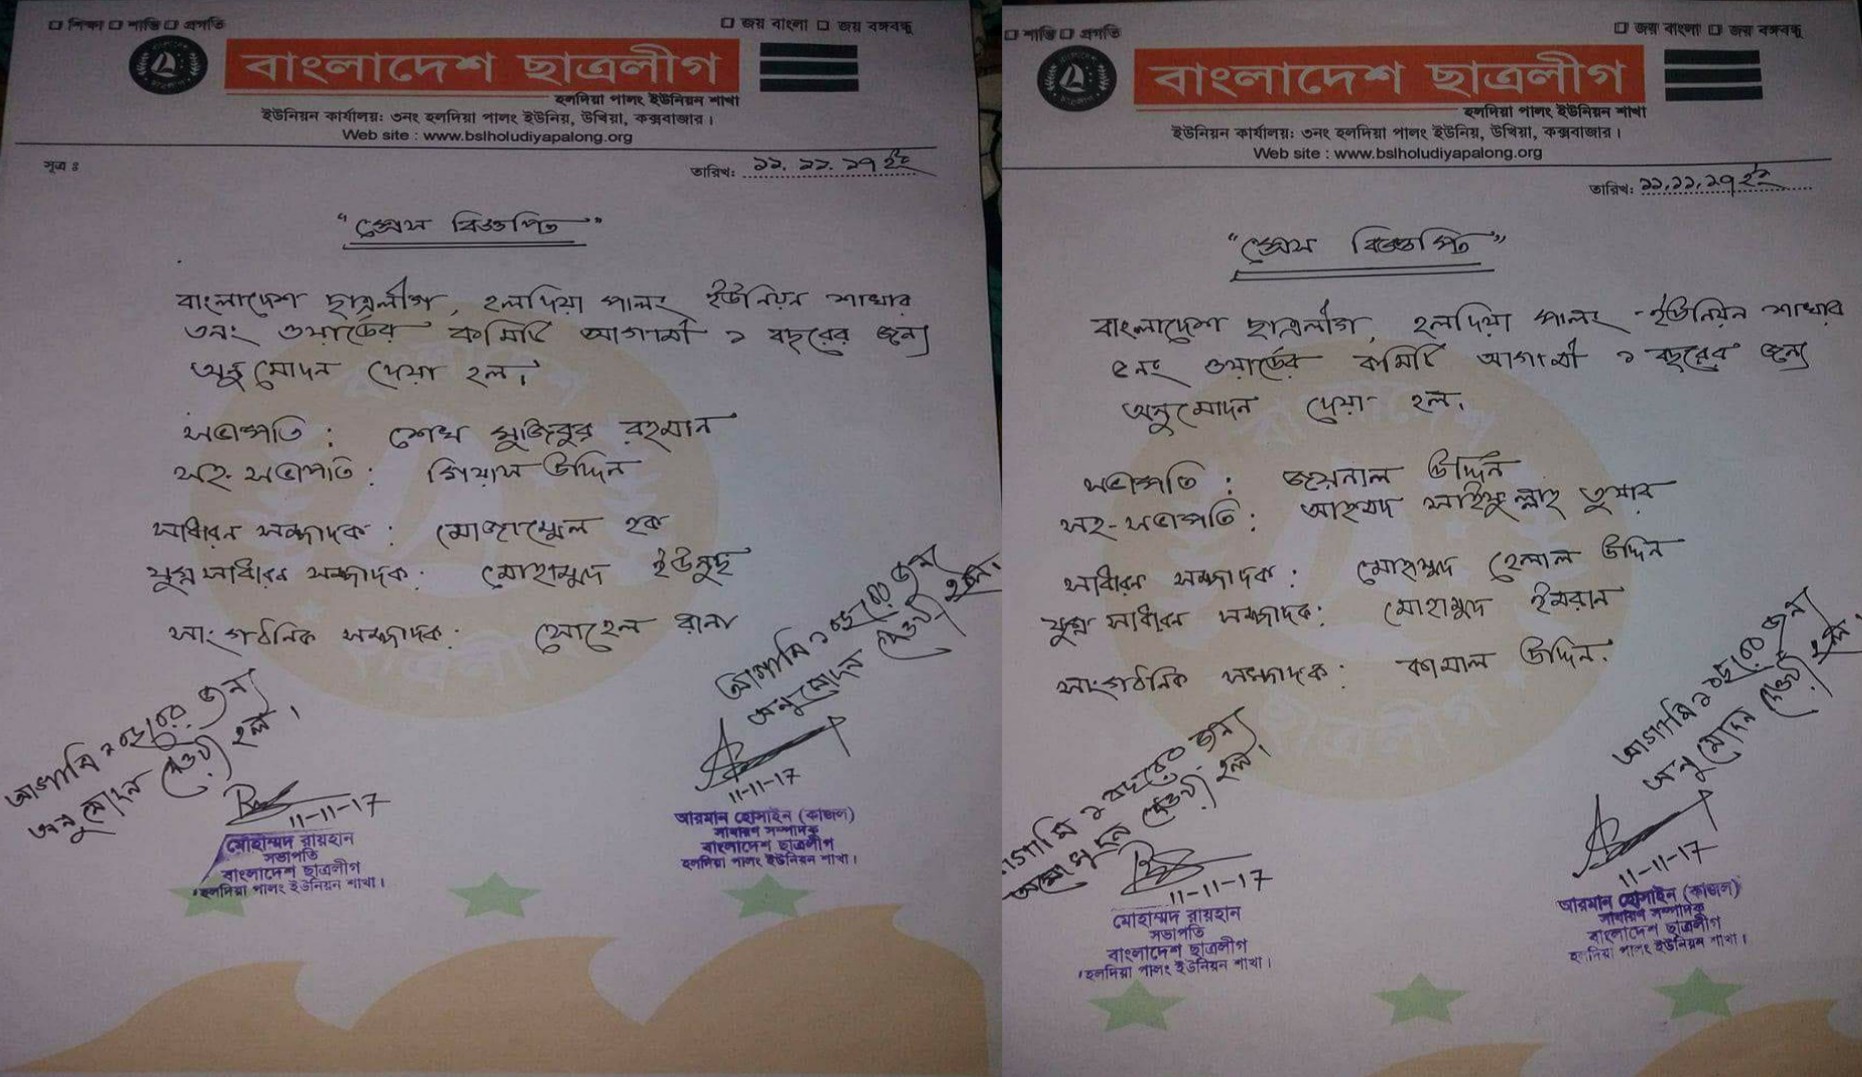 শিক্ষা শান্তি প্রগতি
জয় বাংলা জয় বঙ্গবন্ধু
বাংলাদেশ ছাত্রলীগ
হলদিয়া পালং ইউনিয়ন শাখা
ইউনিয়ন কার্যালয়: ৩নং হলদিয়া পালং ইউনিয়, উখিয়া, কক্সবাজার।
Web site : www.bslholudiyapalong.org
সূত্র ঃ
তারিখ: ১১. ১১. ১৭ ইং
"প্রেস বিজ্ঞপ্তি"
বাংলাদেশ ছাত্রলীগ, হলদিয়া পালং ইউনিয়ন শাখার
৩নং ওয়ার্ডের কমিটি আগামী ১ বছরের জন্য
অনুমোদন দেয়া হল।
সভাপতি : শেখ মুজিবুর রহমান
সহ-সভাপতি : গিয়াস উদ্দিন
সাধারন সম্পাদক : মোজাম্মেল হক
যুগ্ম সাধারন সম্পাদক : মোহাম্মদ ইউনুছ
সাংগঠনিক সম্পাদক : সোহেল রানা
আগামি ১ বছরের জন্য
অনুমোদন দেওয়া হল।
11-11-17
মোহাম্মদ রায়হান
সভাপতি
বাংলাদেশ ছাত্রলীগ
হলদিয়া পালং ইউনিয়ন শাখা।
আগামি ১ বছরের জন্য
অনুমোদন দেওয়া হল।
11-11-17
আরমান হোসাইন (কাজল)
সাধারণ সম্পাদক
বাংলাদেশ ছাত্রলীগ
হলদিয়া পালং ইউনিয়ন শাখা।
শান্তি প্রগতি
জয় বাংলা জয় বঙ্গবন্ধু
বাংলাদেশ ছাত্রলীগ
হলদিয়া পালং ইউনিয়ন শাখা
ইউনিয়ন কার্যালয়: ৩নং হলদিয়া পালং ইউনিয়, উখিয়া, কক্সবাজার।
Web site : www.bslholudiyapalong.org
তারিখ: ১১.১১.১৭ ইং
"প্রেস বিজ্ঞপ্তি"
বাংলাদেশ ছাত্রলীগ, হলদিয়া পালং - ইউনিয়ন শাখার
৫নং ওয়ার্ডের কমিটি আগামী ১ বছরের জন্য
অনুমোদন দেয়া হল।
সভাপতি : জয়নাল উদ্দিন
সহ-সভাপতি : আহমদ সাইফুল্লাহ তুষার
সাধারন সম্পাদক : মোহাম্মদ হেলাল উদ্দিন
যুগ্ম সাধারন সম্পাদক : মোহাম্মদ ইমরান
সাংগঠনিক সম্পাদক : কামাল উদ্দিন.
১ বছরের জন্য
দেওয়া হল।
11-11-17
মোহাম্মদ রায়হান
সভাপতি
বাংলাদেশ ছাত্রলীগ
হলদিয়া পালং ইউনিয়ন শাখা।
আগামি ১ বছরের জন্য
অনুমোদন দেওয়া হল।
11-11-17
আরমান হোসাইন (কাজল)
সাধারণ সম্পাদক
বাংলাদেশ ছাত্রলীগ
হলদিয়া পালং ইউনিয়ন শাখা।